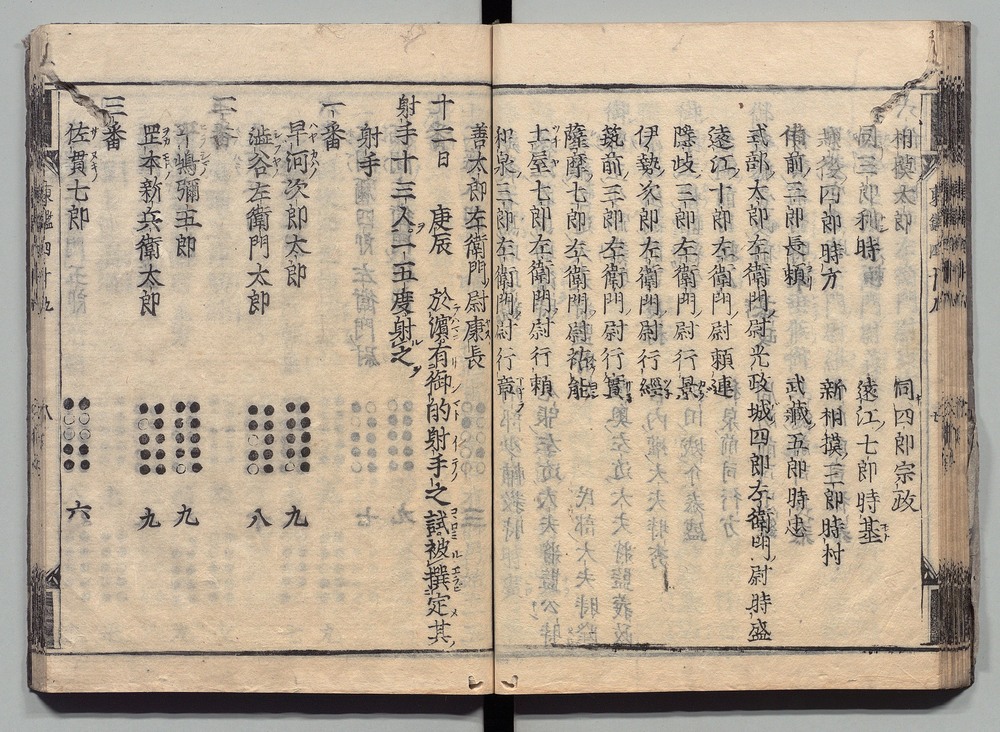 相摸太郎　同四郎宗政
同三郎利時　遠江七郎時基
越後四郎時方　新相摸三郎時村
備前三郎長頼　武藏五郎時忠
式部太郎左衛門尉光政　城四郎左衛門尉時盛
遠江十郎左衛門尉頼連
隱岐三郎左衛門尉行景
伊勢次郎左衛門尉行經
筑前三郎左衛門尉行實
薩摩七郎左衛門尉祐能
土屋七郎左衛門尉行頼
和泉三郎左衛門尉行章
善太郎左衛門尉康長
十二日　庚辰　於濱有御的射手之試被撰定其
射手十三人二五度射之
射手
一番
早河次郎太郎　九
澁谷左衛門太郎　八
二番
平嶋彌五郎　九
罡本新兵衛太郎　九
三番
佐貫七郎　六
東鑑四十九　八